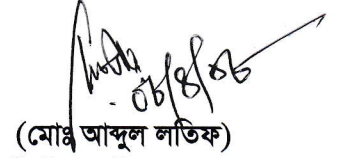 ০৮/৪/০৮
(মোঃ আব্দুল লতিফ)